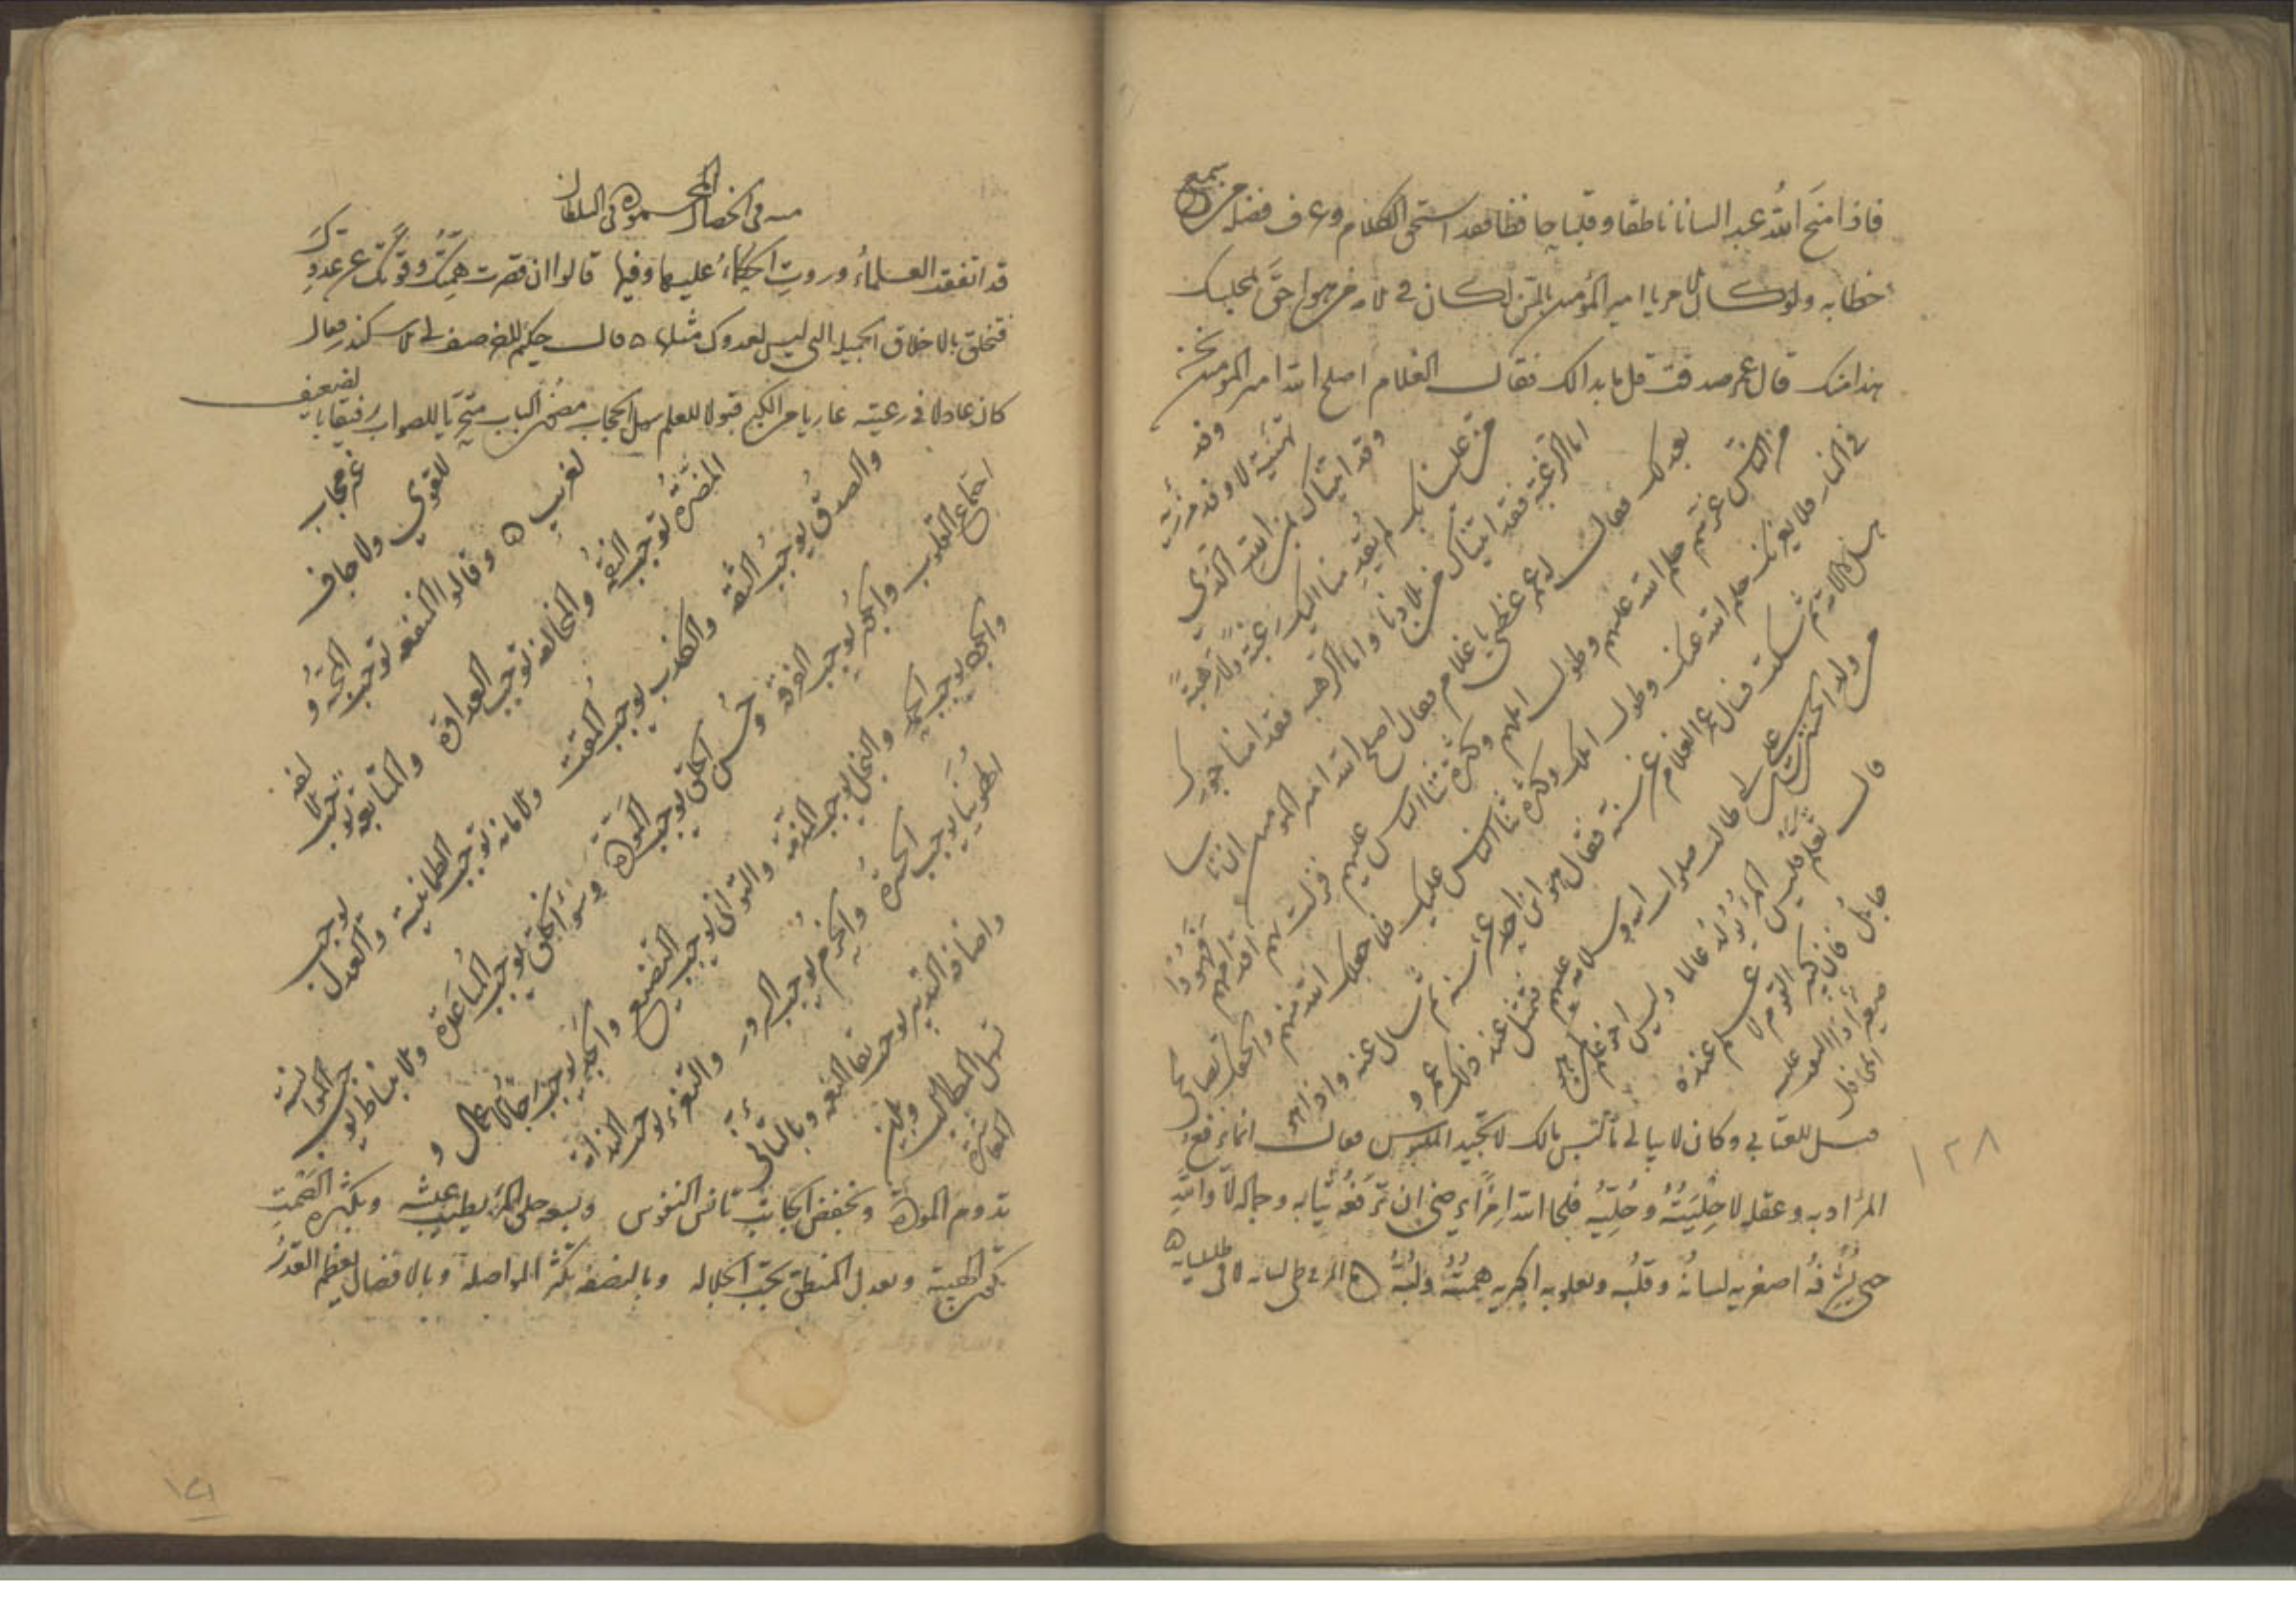 فاذا منح الله عبدا لسانا ناطقا وقلبا حافظا فقد استحق الكلام وعرف فضله من سمع
خطابه ولو كان الامر يا امير المؤمنين بالسن لكان في الامة من هو احق بمجلسك
هذا منك قال عمر صدقت قل ما بدا لك فقال الغلام اصلح الله امير المؤمنين نحن
وفد تهنئة لا وفد مرزئة
وقد اتيناك لمن الله الذي
من علينا بك لم يقدمنا اليك رغبة ولا رهبة
اما الرغبة فقد اتيناك من بلادنا واما الرهبة فقد امنا جورك
بعدلك فقال له عمر عظني يا غلام فقال اصلح الله امير المؤمنين ان ناسا
من الناس غرهم حلم الله عليهم وطول املهم وكثرة ثنا الناس عليهم فزلت بهم اقدامهم فهووا
في النار فلا يغرنك حلم الله عنك وطول املك وكثرة ثنا الناس عليك فلا جعلك الله منهم والحقك بصالحي
هذه الامة ثم سكت فسال عمر الغلام عن سنه فقال هو ابن احدى عشر سنة ثم سال عنه واذا هو
من ولد الحسين بن علي بن ابي طالب صلوات الله وسلامه عليهم فتمثل عند ذلك عمر و
قال تعلم فليس المرء يولد عالما وليس اخو علم كمن هو
جاهل فان كبير القوم لا علم عنده
صغير اذا التفت عليه المحافل
قيل للعتابي وكان لا يبالي ما لبس مالك لا تجيد الملبوس فقال انما يرفع
المرء ادبه وعقله لا حليته وحلته فلحا الله امرءا يرضى ان ترفعه ثيابه وجماله لا والله
حتى يشرفه اصغريه لسانه وقلبه وتعلو به اكبريه همته ولبه ه المرء في طي لسانه لا في طيلسانه ه
١٢٨
في الخصال المحمودة في السلطان
قد اتفقت العلماء وروت الحكماء عليها وفيها قالوا ان قصرت همتك وقوتك عن عدوك
فتخلق بالاخلاق الجميلة التي ليس لعدوك مثلها ه قال حكيم للخضر صف لي الاسكندر فقال
كان عادلا في رعيته عاريا من الكبر قبولا للعلم سهل الحجاب مصون الباب متحريا للصواب رفيقا بالضعيف
غير محاب
للقوي ولا جاف
لغريب ه وقالوا المنفعة توجب المحبة و
المضرة توجب البغضة والمخالفة توجب العداوة والمتابعة توجب الالفة
والصدق يوجب الثقة والكذب يوجب المقت والامانة توجب الطمانينة والعدل يوجب
اجتماع القلوب والجور يوجب الفرقة وحسن الخلق يوجب المودة وسوء الخلق يوجب المباعدة والانبساط يوجب الموانسة
والجود يوجب الحمد والبخل يوجب المذمة والتواني يوجب التضييع والحيلة توجب رجا الاعمال و
الهوينا يوجب الحسرة والحزم يوجب السرور والتغرير يوجب الندامة
واصابة التدبير توجب بقا النعمة وبالتأني
تسهل المطالب وبلين المعاشرة
تدوم المودة وبخفض الجانب تانس النفوس وبسعة خلق المرء يطيب عيشه وبكثرة الصمت
تكون الهيبة وبعدل المنطق تجب الجلالة وبالنصفة تكثر المواصلة وبالافضال يعظم القدر